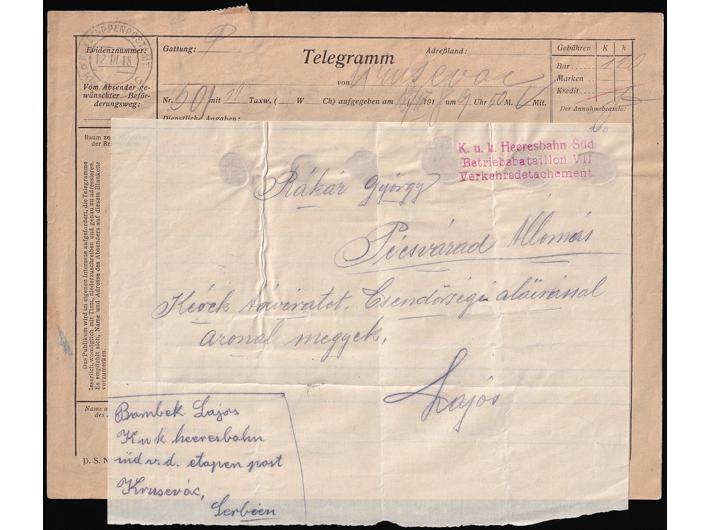 K. u. K. ETAPPENPOSTAMT
12.III.18
Evidenznummer:
Vom Absender ge-
wünschter Beför-
derungsweg:
Gattung: P
Telegramm
Adreßland:
von Krusevac
Nr. 50/ mit Taxw. ( W Ch) aufgegeben am 191 8 9 Uhr 50 M. Mit.
Dienstliche Angaben:
Gebühren K h
Bar
Marken
Kredit
Der Annahmebeamte:
Raum zu
der Br
Das Publikum wird in eigenem Interesse aufgefordert, die Telegramme
leserlich, womöglich mit Tinte, niederzuschreiben und genau zu adressieren.
Es empfiehlt sich, Name und Adresse des Absenders auf diesem Blankette
vorzumerken.
Name u
des
D. S. N
K. u. k. Heeresbahn Süd
Betriebsbataillon VII
Verkehrsdetachement
Rákár György
Pécsvárad Állomás
Kérek táviratot. Csendőrségi aláirással
aronal megyek.
Lajós
Bambek Lajos
K u k heeresbahn
süd v. d. etapen post
Krusevác,
Serbien